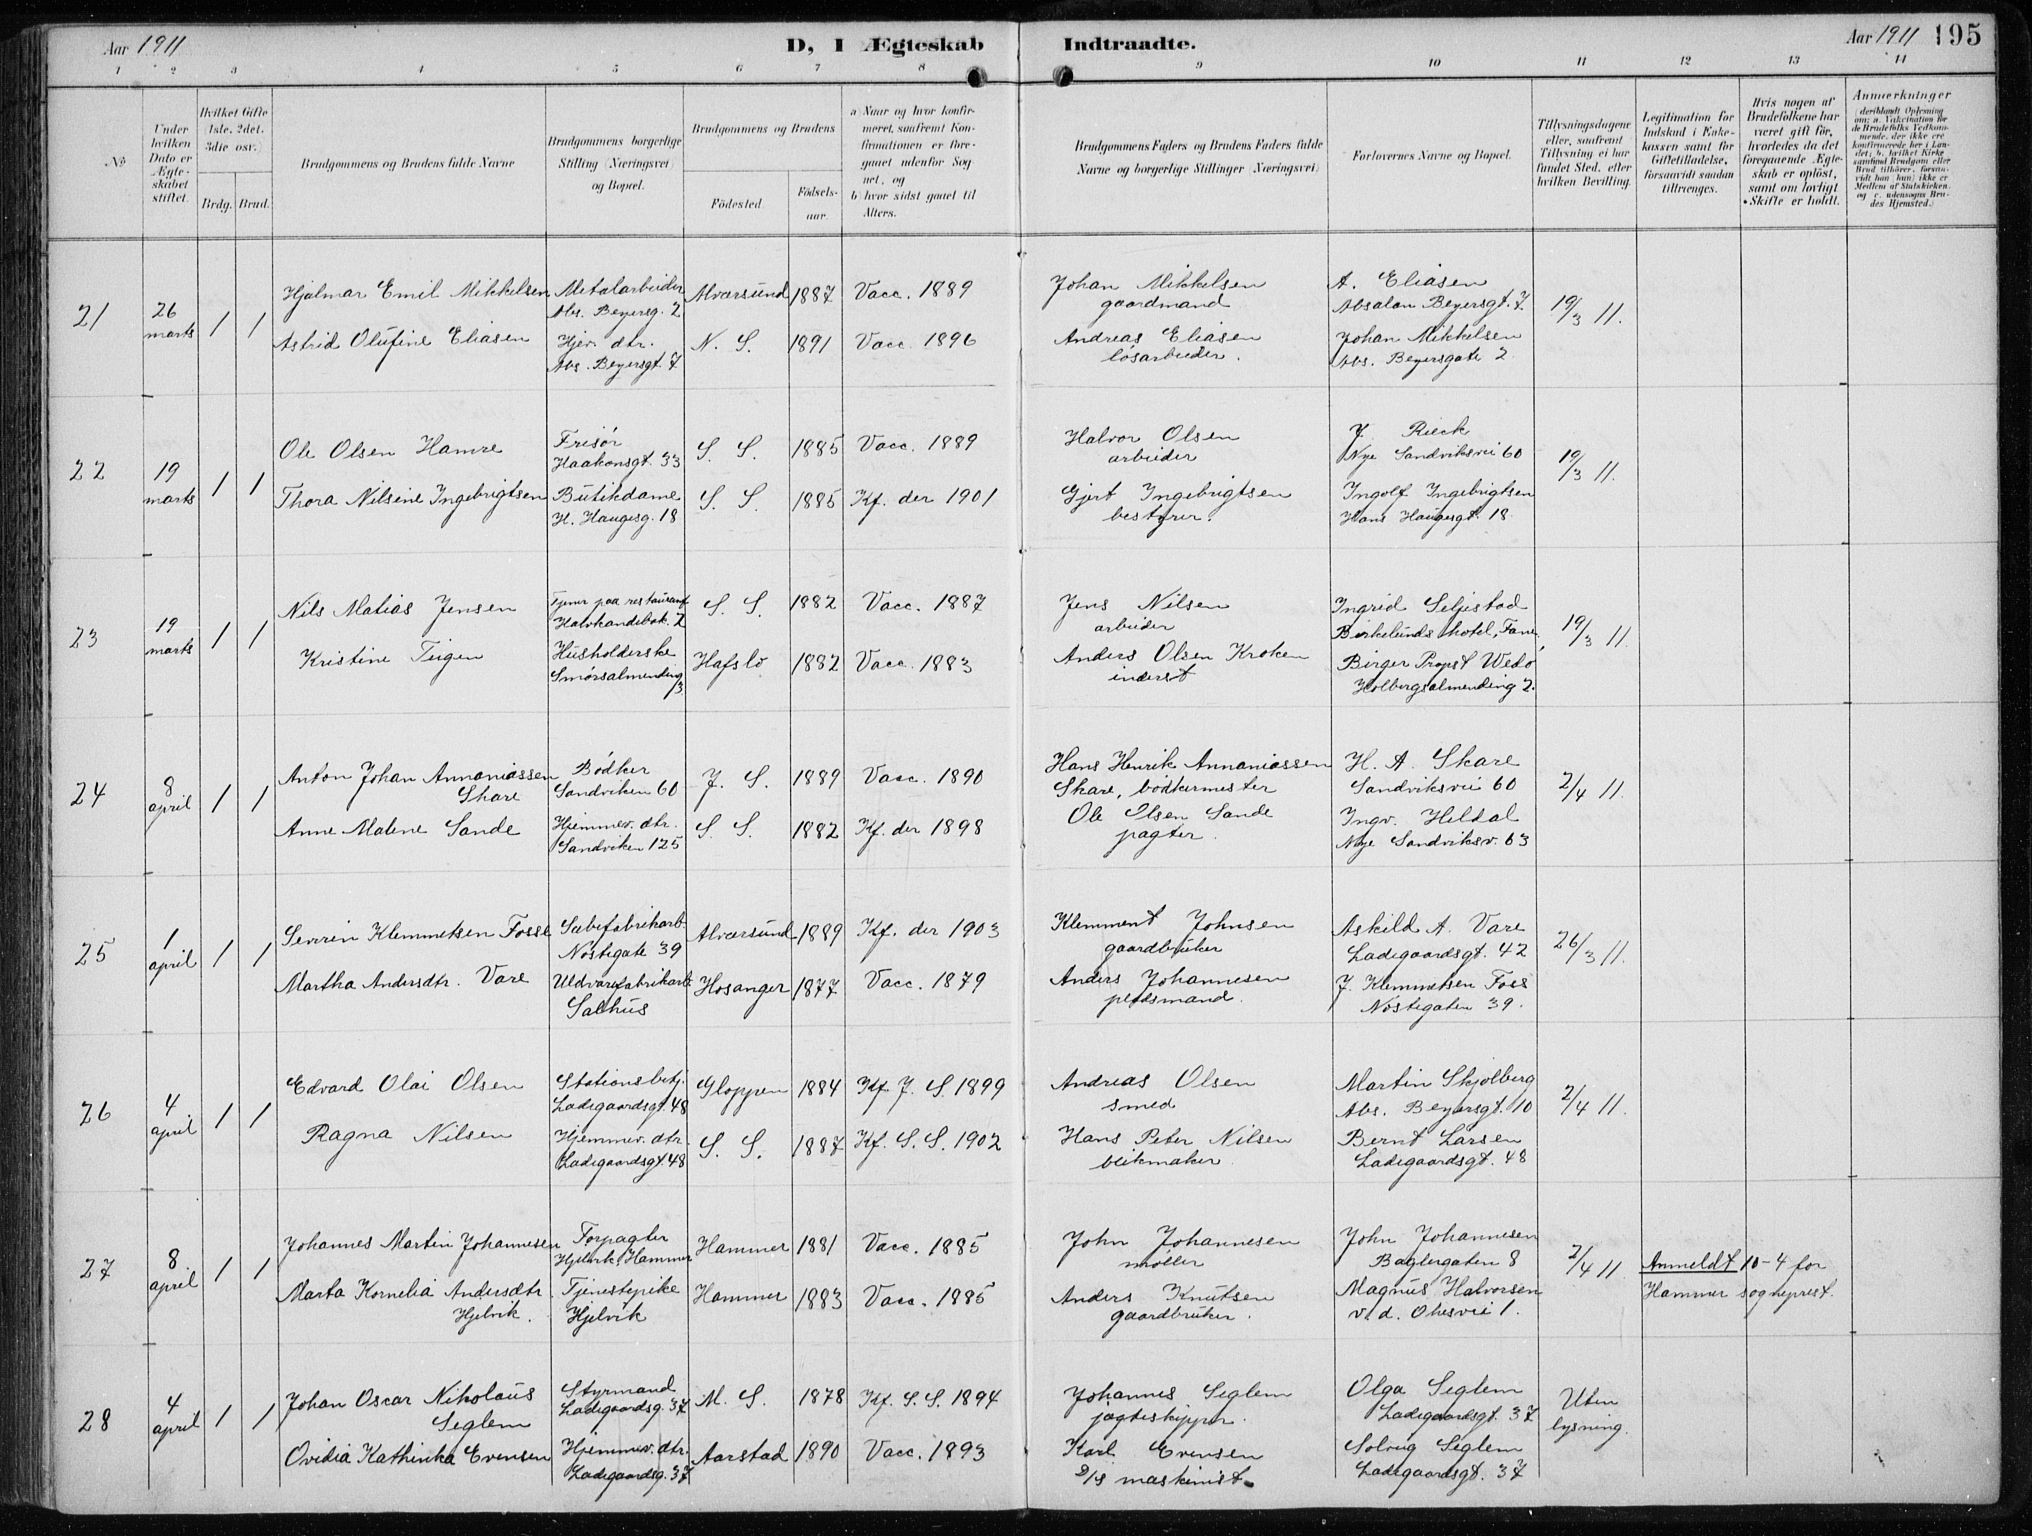 Aar 1911 D, 1 Ægteskab Indtraadte. Aar 1911 195
1 2 3 4 5 6 7 8 9 10 11 12 13 14
№
Under hvilken Dato er Ægteskabet stiftet.
Hvilket Gifte 1ste, 2det, 3die osv.)
Brdg. Brud.
Brudgommens og Brudens fulde Navne
Brudgommens borgerlige Stilling (Næringsvei) og Bopæl.
Brudgommens og Brudens
Födested. Födsels-aar.
a) Naar og hvor konfir-
meret, saafremt Kon-
firmationen er fore-
gaaet udenfor Sog
net, og
b) hvor sidst gaaet til
Alters.
Brudgommens Faders og Brudens Faders fulde
Navne og borgerlige Stillinger (Næringsvei)
Forlovernes Navne og Bopæl.
Tillysningsdagene
eller, saafremt
Tillysning ei har
fundet Sted, efter
hvilken Bevilling.
Legitimation for
Indskud i Enke-
kassen samt for
Giftetilladelse,
forsaavidt saadan
tiltrænges.
Hvis nogen af
Brudefolkene har
været gift för,
hvorledes da det
foregaaende Ægte-
skab er oplöst,
samt om lovligt
Skifte er holdt.
Anmærkninger
(deriblandt Oplysning
om: a. Vakcination for
de Brudefolks Vedkom-
mende, der ikke ere
konfirmerede her i Lan-
det; b. hvilket Kirke-
samfund Brudgom eller
Brud tilhörer, forsaa-
vidt han (hun) ikke er
Medlem af Statskirken,
og c. udensogns Bru-
des Hjemsted.)
21 26 marts 1 1
Hjalmar Emil Mikkelsen Metalarbeider Abs. Beyersg. 2 Alversund 1887 Vacc. 1889 Johan Mikkelsen gaardmand A. Eliasen Absalon Beyersgt. 7 19/3 11.
Astrid Olufine Eliasen Hjev. dtr. Abs. Beyersgt. 7 N. S. 1891 Vacc. 1896 Andreas Eliasen løsarbeider. Johan Mikkelsen Abs. Beyersgate 2
22 19 marts 1 1
Ole Olsen Hamre Frisør Haakonsgt. 33 S. S. 1885 Vacc. 1889 Halvor Olsen arbeider J. Rieck Nye Sandviksvei 60 19/3 11.
Thora Nilsine Ingebrigtsen Butikdame H. Haugesg. 18 S. S. 1885 Kf. der 1901 Gjert Ingebrigtsen bestyrer. Ingolf Ingebrigtsen Hans Haugesgt. 18
23 19 marts 1 1
Nils Matias Jensen Tjener paa restaurant S. S. 1882 Vacc. 1887 Jens Nilsen arbeider Ingrid Seljestad Birkelunds hotel, Fane 19/3 11.
Kristine Teigen Husholderske Smørsalmending 3 Hafslo 1882 Vacc. 1883 Anders Olsen Kroken inderst Birger Propst Wedø Holbergsalmending 2.
24 8 april 1 1
Anton Johan Annaniassen Skare Bødker Sandviken 60 J. S. 1889 Vacc. 1890 Hans Henrik Annaniassen Skare, bødkermester H. A. Skare Sandviksvei 60 2/4 11.
Anne Malene Sande Hjemmev. dtr. Sandviken 125 S. S. 1882 Kf. der 1898 Ole Olsen Sande pagter. Ingv. Heldal Nye Sandviksv. 63
25 1 april 1 1
Severin Klemmetsen Fosse Sæbefabrikarb. Nøstegate 39 Alversund 1889 Kf. der 1903 Klemment Johnsen gaardbruker Askild A. Vare Ladegaardsgt. 42 26/3 11.
Martha Andersdtr. Vare Uldvarefabrikarb. Salhus Hosanger 1877 Vacc. 1879 Anders Johannesen pladsmand. J. Klemmetsen Foss Nøstegaten 39.
26 4 april 1 1
Edvard Olai Olsen Stationsbetj. Ladegaardsgt. 48 Gloppen 1884 Kf. J. S. 1899 Andreas Olsen smed Martin Skjolberg Abs. Beyersgt. 10 2/4 11.
Ragna Nilsen Hjemmev. dtr. Ladegaardsgt. 48 S. S. 1887 Kf. S. S. 1902 Hans Peter Nilsen blikmaker Bernt Larsen Ladegaardsgt. 48
27 8 april 1 1
Johannes Martin Johannesen Forpagter Hjelvik, Hammer Hammer 1881 Vacc. 1885 John Johannesen møller John Johannesen Baglergaten 8 2/4 11. Anmeldt 10-4 for
Marta Kornelia Andersdtr. Hjelvik. Tjenestepike Hjelvik Hammer 1883 Vacc. 1885 Anders Knutsen gaardbruker. Magnus Halvorsen v. d. Ohesvei 1. Hammer sogneprest.
28 4 april 1 1
Johan Oscar Nikolaus Seglem Styrmand Ladegaardsg. 37 M. S. 1878 Kf. S. S. 1894 Johannes Seglem jagteskipper. Olga Seglem Ladegaardsgt. 37 Uten lysning.
Ovidia Kathinka Evensen Hjemmev. dtr. Ladegaardsg. 37 Aarstad 1890 Vacc. 1893 Karl Evensen D/S maskinist. Solveig Seglem Ladegaardsgt. 37